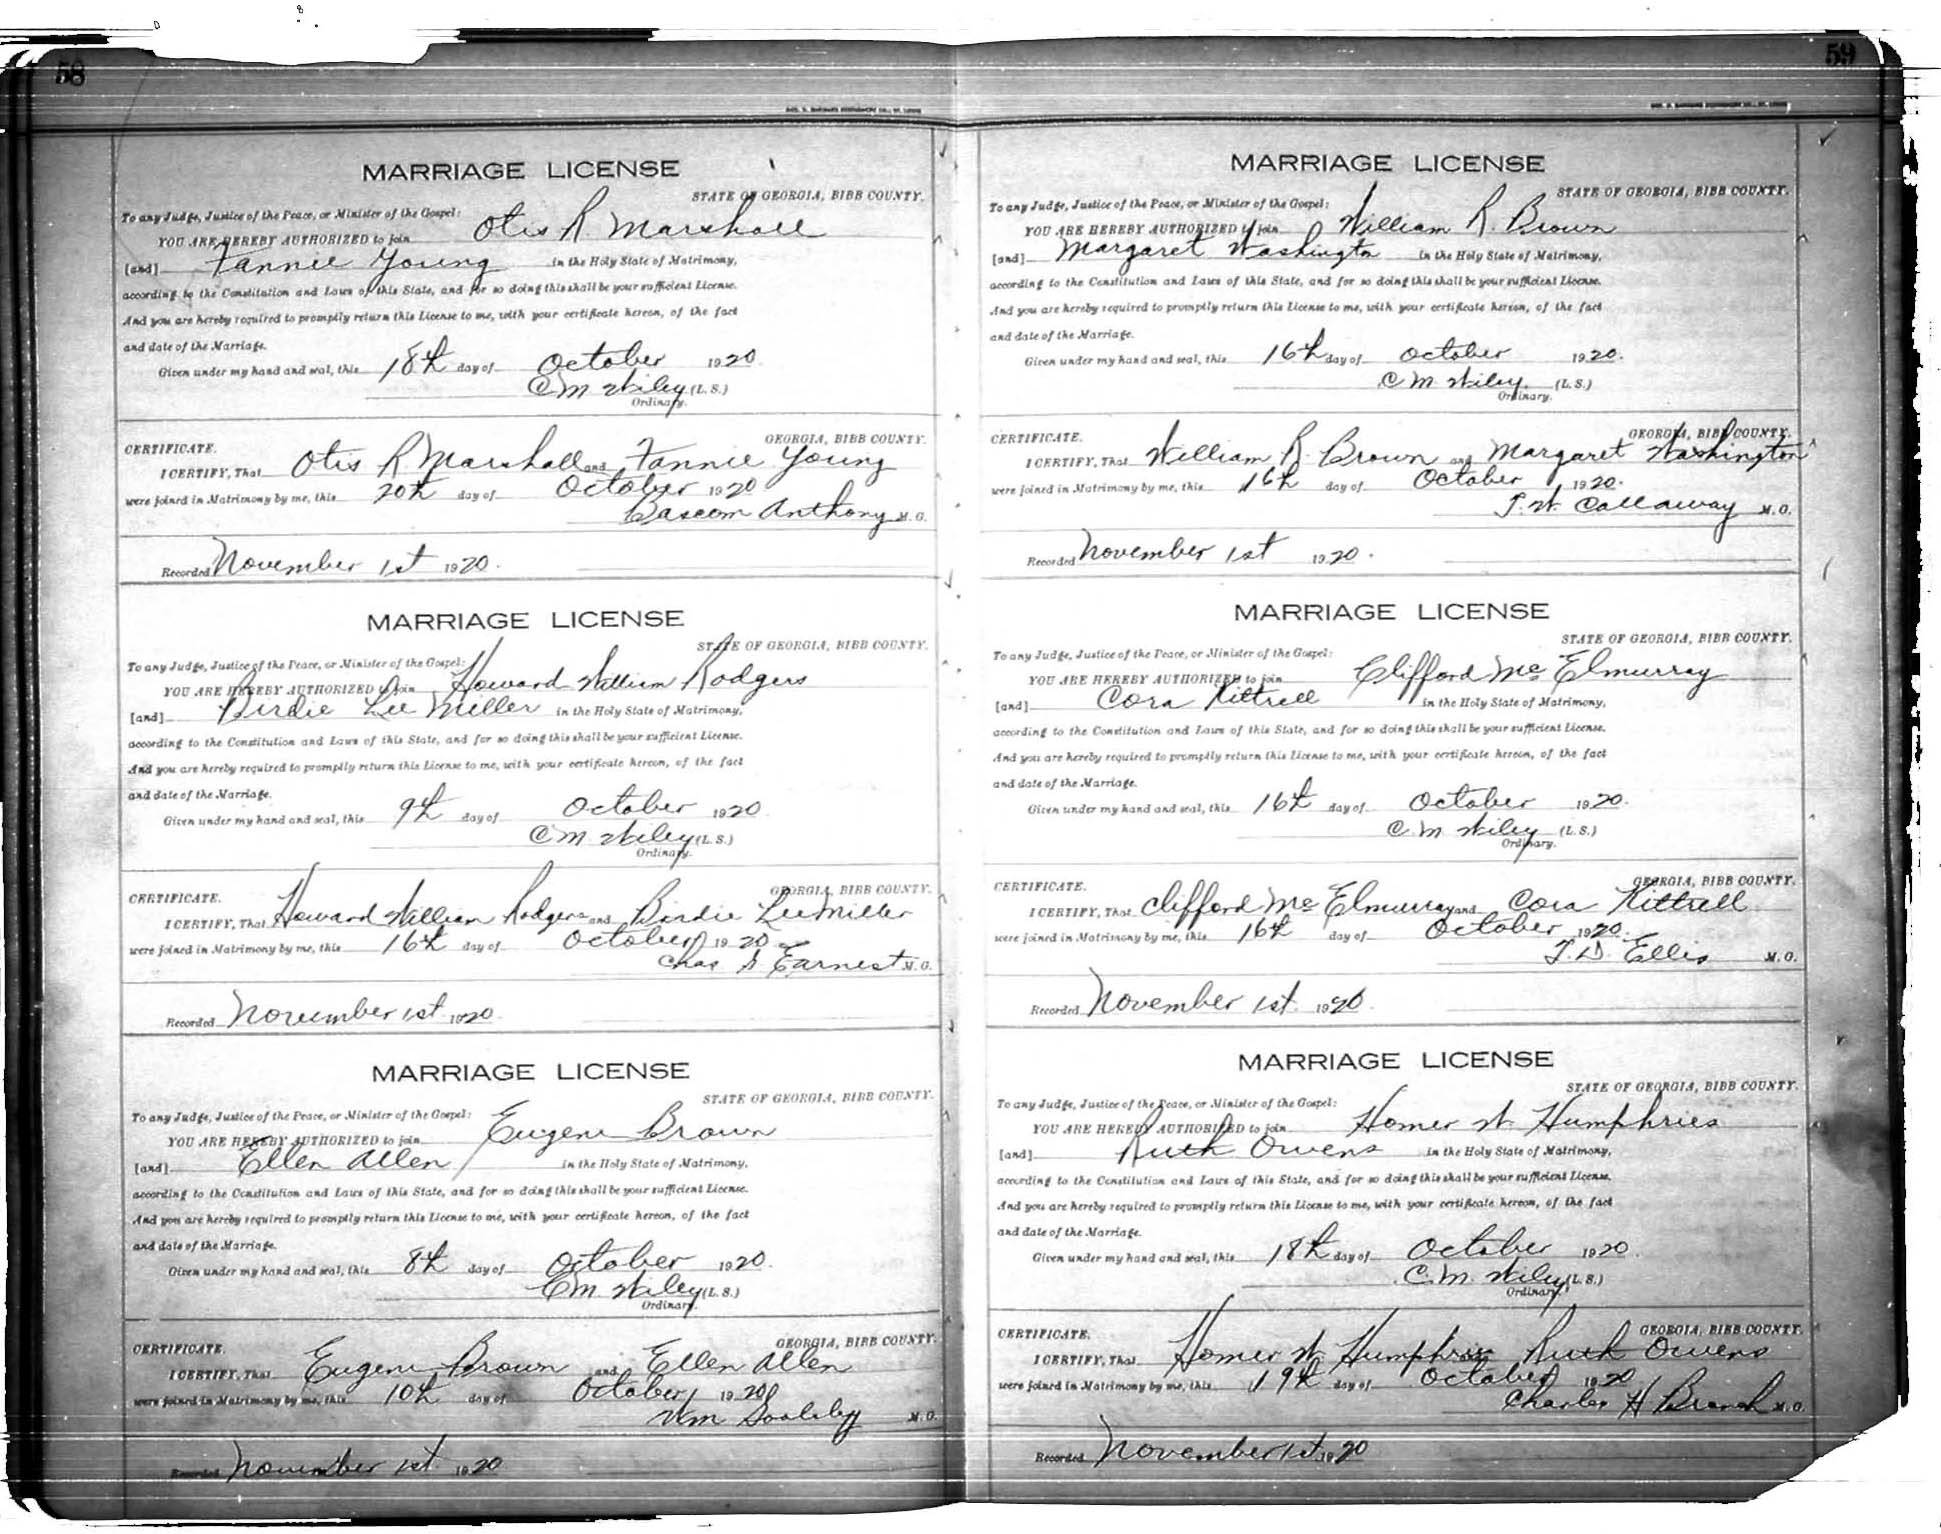 58
MARRIAGE LICENSE
STATE OF GEORGIA, BIBB COUNTY.
To any Judge, Justice of the Peace, or Minister of the Gospel:
YOU ARE HEREBY AUTHORIZED to join Otis R. Marshall
[and] Fannie Young in the Holy State of Matrimony,
according to the Constitution and Laws of this State, and for so doing this shall be your sufficient License.
And you are hereby required to promptly return this License to me, with your certificate hereon, of the fact
and date of the Marriage.
Given under my hand and seal, this 18th day of October 1920.
C M Wiley (L. S.)
Ordinary.
CERTIFICATE. GEORGIA, BIBB COUNTY.
I CERTIFY, That Otis R Marshall and Fannie Young
were joined in Matrimony by me, this 20th day of October 1920
Bascom Anthony M. G.
Recorded November 1st 1920.
MARRIAGE LICENSE
STATE OF GEORGIA, BIBB COUNTY.
To any Judge, Justice of the Peace, or Minister of the Gospel:
YOU ARE HEREBY AUTHORIZED to join Howard William Rodgers
[and] Birdie Lee Miller in the Holy State of Matrimony,
according to the Constitution and Laws of this State, and for so doing this shall be your sufficient License.
And you are hereby required to promptly return this License to me, with your certificate hereon, of the fact
and date of the Marriage.
Given under my hand and seal, this 9th day of October 1920
C M Wiley (L. S.)
Ordinary.
CERTIFICATE. GEORGIA, BIBB COUNTY.
I CERTIFY, That Howard William Rodgers and Birdie Lee Miller
were joined in Matrimony by me, this 16th day of October 1920
Chas S Earnest M. G.
Recorded November 1st 1920.
MARRIAGE LICENSE
STATE OF GEORGIA, BIBB COUNTY.
To any Judge, Justice of the Peace, or Minister of the Gospel:
YOU ARE HEREBY AUTHORIZED to join Eugene Brown
[and] Ellen Allen in the Holy State of Matrimony,
according to the Constitution and Laws of this State, and for so doing this shall be your sufficient License.
And you are hereby required to promptly return this License to me, with your certificate hereon, of the fact
and date of the Marriage.
Given under my hand and seal, this 8th day of October 1920.
C M Wiley (L. S.)
Ordinary.
CERTIFICATE. GEORGIA, BIBB COUNTY.
I CERTIFY, That Eugene Brown and Ellen Allen
were joined in Matrimony by me, this 10th day of October 1920
Wm M. G.
Recorded November 1st 1920
59
MARRIAGE LICENSE
STATE OF GEORGIA, BIBB COUNTY.
To any Judge, Justice of the Peace, or Minister of the Gospel:
YOU ARE HEREBY AUTHORIZED to join William R. Brown
[and] Margaret Washington in the Holy State of Matrimony,
according to the Constitution and Laws of this State, and for so doing this shall be your sufficient License.
And you are hereby required to promptly return this License to me, with your certificate hereon, of the fact
and date of the Marriage.
Given under my hand and seal, this 16th day of October 1920.
C M Wiley. (L. S.)
Ordinary.
CERTIFICATE. GEORGIA, BIBB COUNTY.
I CERTIFY, That William R. Brown and Margaret Washington
were joined in Matrimony by me, this 16th day of October 1920.
T. W. Callaway M. G.
Recorded November 1st 1920.
MARRIAGE LICENSE
STATE OF GEORGIA, BIBB COUNTY.
To any Judge, Justice of the Peace, or Minister of the Gospel:
YOU ARE HEREBY AUTHORIZED to join Clifford Mc Elmurray
[and] Cora Kittrell in the Holy State of Matrimony,
according to the Constitution and Laws of this State, and for so doing this shall be your sufficient License.
And you are hereby required to promptly return this License to me, with your certificate hereon, of the fact
and date of the Marriage.
Given under my hand and seal, this 16th day of October 1920.
C. M. Wiley (L. S.)
Ordinary.
CERTIFICATE. GEORGIA, BIBB COUNTY.
I CERTIFY, That Clifford Mc Elmurray and Cora Kittrell
were joined in Matrimony by me, this 16th day of October 1920.
T. D. Ellis M. G.
Recorded November 1st. 1920.
MARRIAGE LICENSE
STATE OF GEORGIA, BIBB COUNTY.
To any Judge, Justice of the Peace, or Minister of the Gospel:
YOU ARE HEREBY AUTHORIZED to join Homer W. Humphries
[and] Ruth Owens in the Holy State of Matrimony,
according to the Constitution and Laws of this State, and for so doing this shall be your sufficient License.
And you are hereby required to promptly return this License to me, with your certificate hereon, of the fact
and date of the Marriage.
Given under my hand and seal, this 18th day of October 1920.
C. M. Wiley (L. S.)
Ordinary.
CERTIFICATE. GEORGIA, BIBB COUNTY.
I CERTIFY, That Homer W Humphries Ruth Owens
were joined in Matrimony by me, this 19th day of October 1920
Charles H Branch M. G.
Recorded November 1st 1920